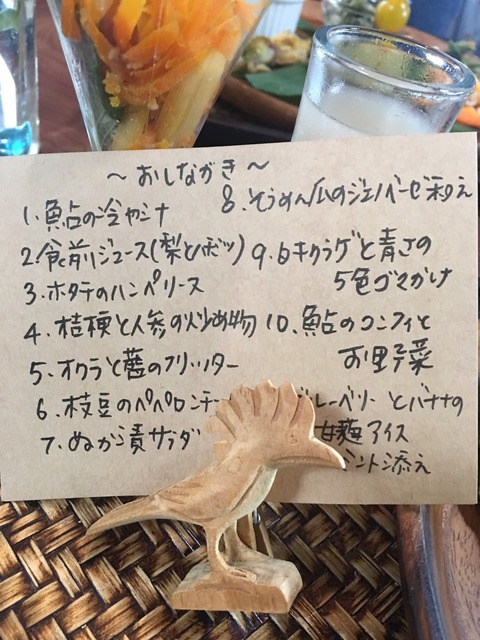 ～おしながき～
1.鮎の冷やシナ
2食前ジュース(梨とポッ)
3.ホタテのハンペリース
4.桔梗と人参の炒め物
5.オクラと茗のフリッター
6.枝豆のペペロンチー
7.ぬか漬サラダ
8.そうめん瓜のジェノベーゼ和え
9.キクラゲと青さの
5色ゴマがけ
10.鮎のコンフィと
お野菜
ルーベリーとバナナの
甘麹アイス
ミント添え